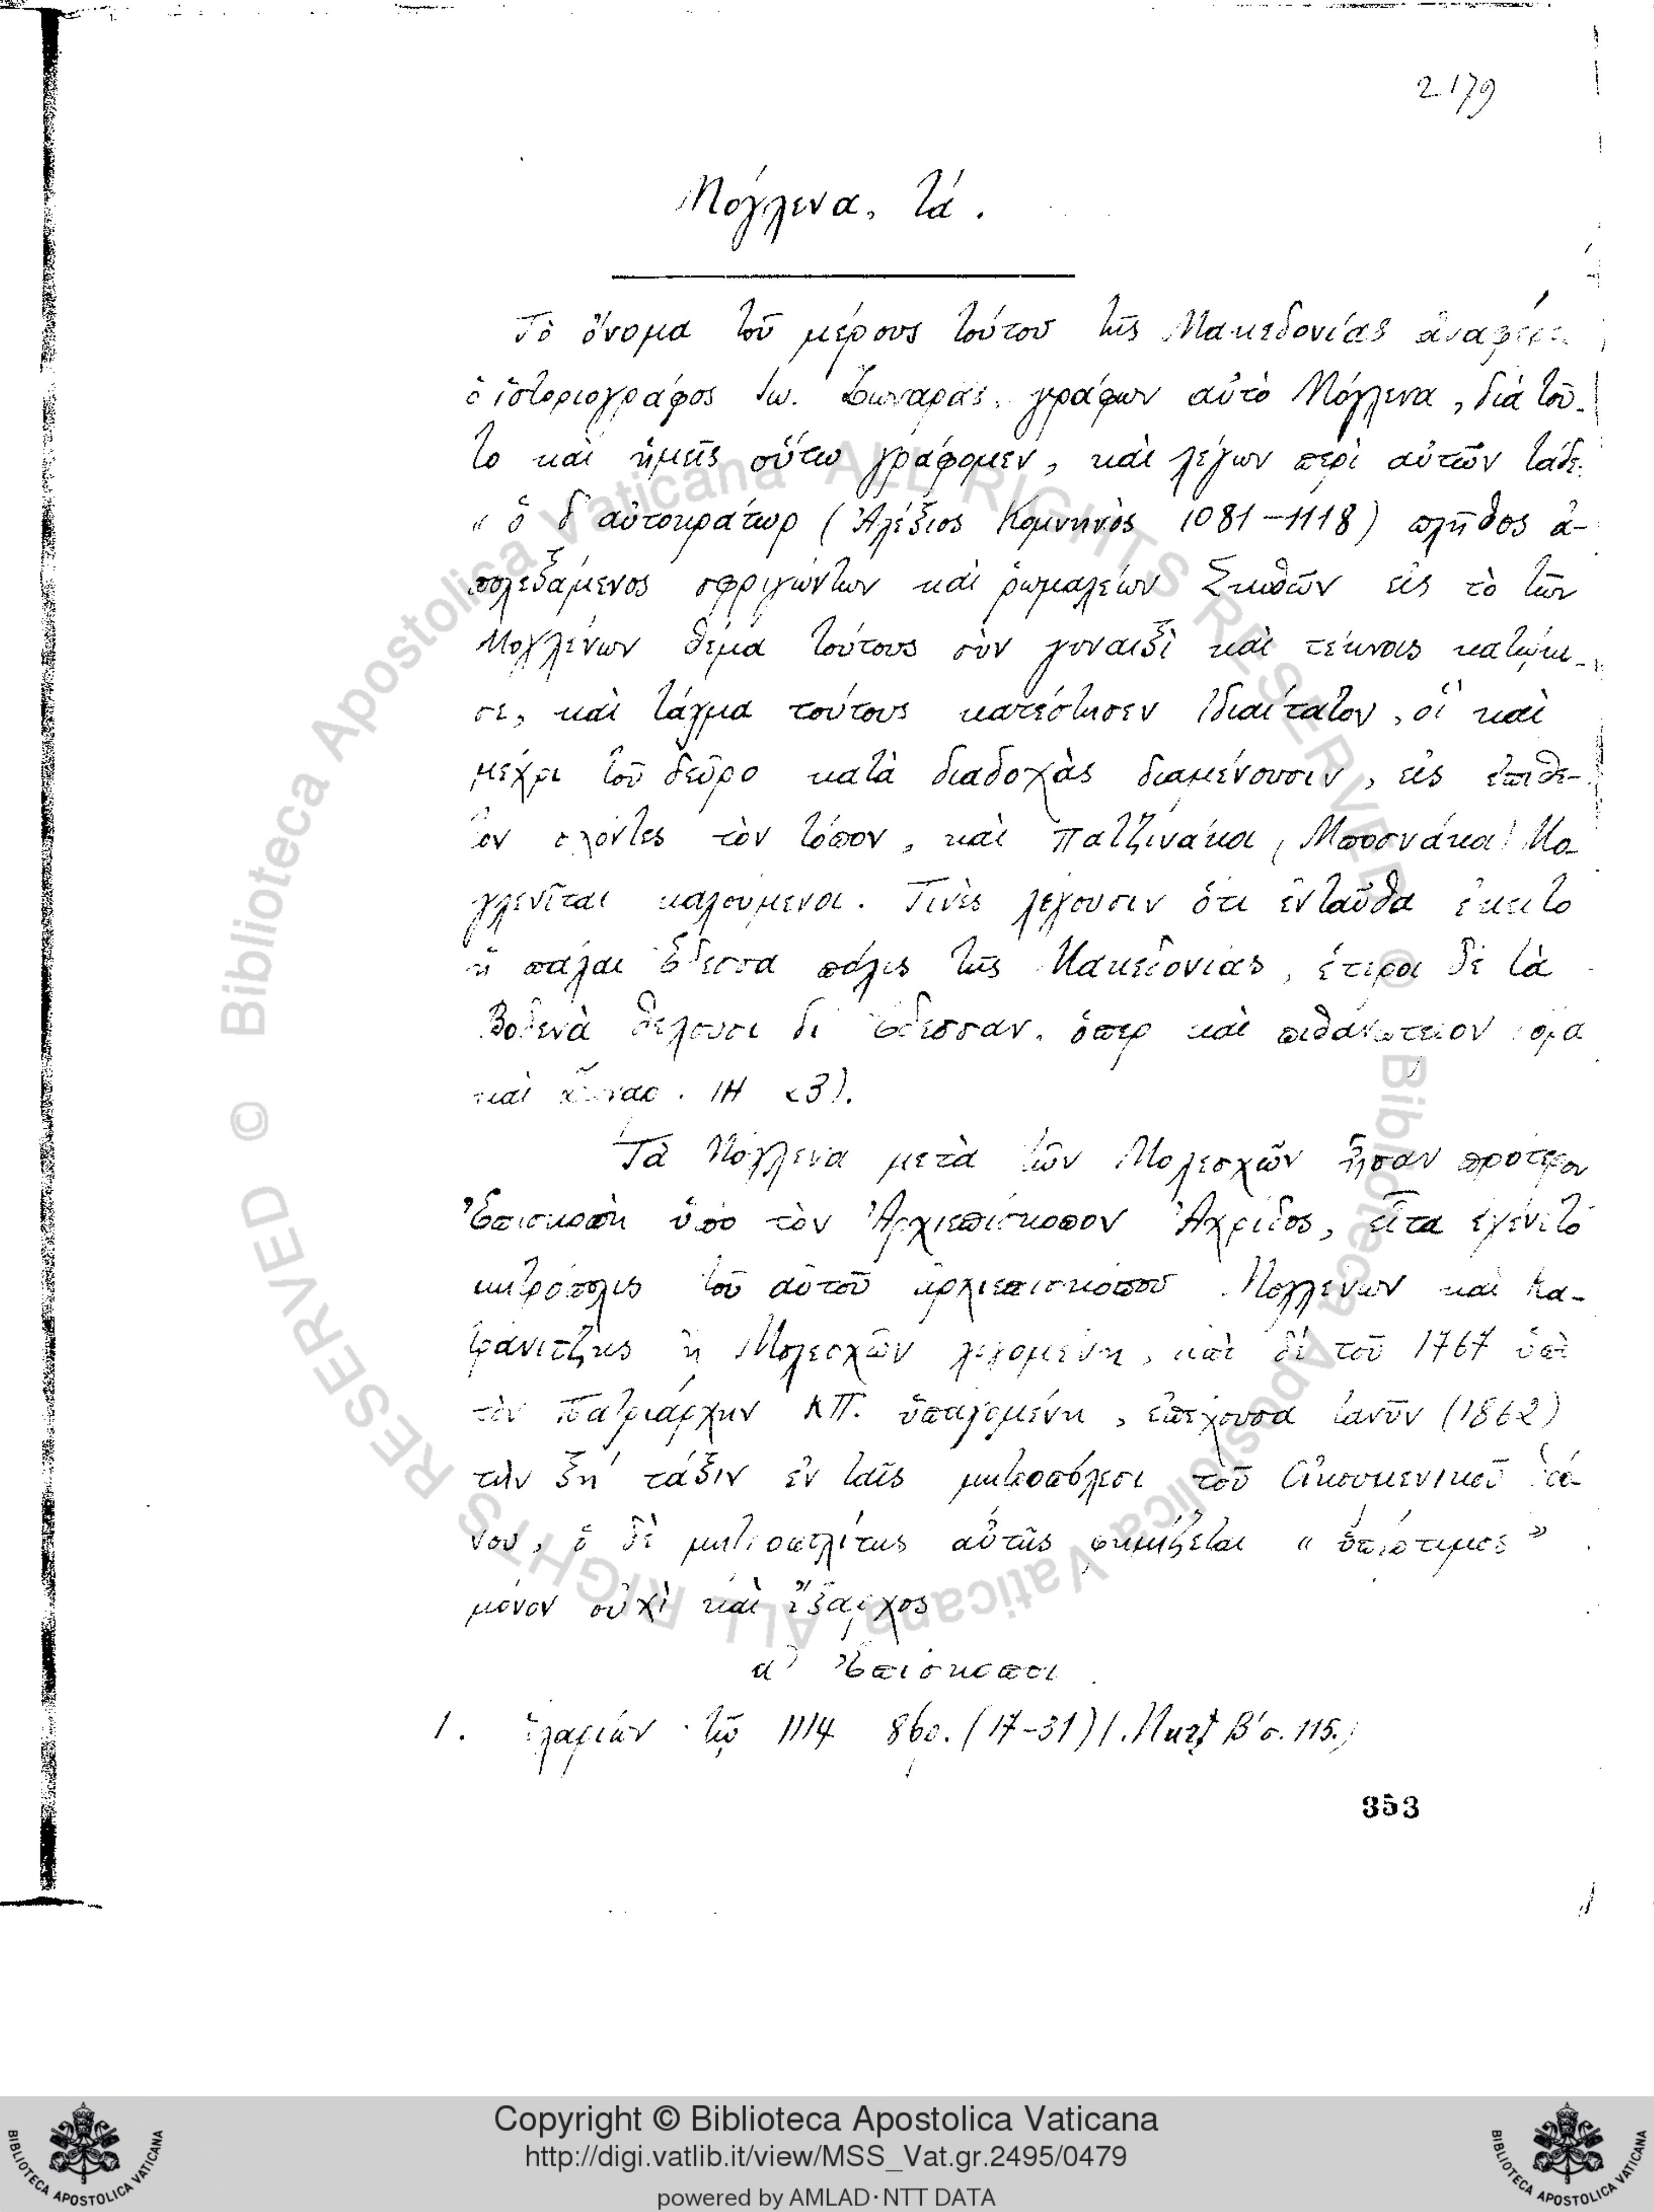 2179
Μόγλενα, τά.
Τὸ ὄνομα τοῦ μέρους τούτου τῆς Μακεδονίας ἀναφέρει
ὁ ἱστοριογράφος Ἰω. Ζωναρᾶς, γράφων αὐτὸ Μόγλενα, διὰ τοῦ-
το καὶ ἡμεῖς οὕτω γράφομεν, καὶ λέγων περὶ αὐτῶν τάδε
« ὁ δ' αὐτοκράτωρ (Ἀλέξιος Κομνηνὸς 1081-1118) πλῆθος ἀ-
πολεξάμενος σφριγώντων καὶ ῥωμαλέων Σκυθῶν εἰς τὸ τῶν
Μογλένων θέμα τούτους σὺν γυναιξὶ καὶ τέκνοις κατῴκι-
σε, καὶ τάγμα τούτους κατέστησεν ἰδιαίτατον, οἳ καὶ
μέχρι τοῦ δεῦρο κατὰ διαδοχὰς διαμένουσιν, εἰς ἐπίθε-
τον τὸν τόπον, καὶ Πατζινάκαι, Μποσνάκαι Μο-
γλενῖται καλούμενοι. Τινὲς λέγουσιν ὅτι ἐνταῦθα ἔκειτο
ἡ πάλαι Ἔδεσσα πόλις τῆς Μακεδονίας, ἕτεροι δὲ τὰ
Βοδενὰ θέλουσι δι' Ἔδεσσαν, ὅπερ καὶ πιθανώτερον
καὶ ΙΗ 23).
Τὰ Μόγλενα μετὰ τῶν Μολεσχῶν ἦσαν πρότερον
Ἐπισκοπὴ ὑπὸ τὸν Ἀρχιεπίσκοπον Ἀχρίδος, εἶτα ἐγένετο
μητρόπολις τοῦ αὐτοῦ ἀρχιεπισκόπου Μογλένων καὶ Κα-
τρανίτζης ἢ Μολεσχῶν λεγομένη, δὲ τοῦ 1767 ὑπὸ
τὸν Πατριάρχην ΚΠ. ὑπαγομένη, ἐπέχουσα τανῦν (1862)
τὴν ξη' τάξιν ἐν ταῖς μητροπόλεσι τοῦ Οἰκουμενικοῦ Θρό-
νου, ὁ δὲ μητροπολίτης αὐτῆς φημίζεται « ὑπέρτιμος »
μόνον οὐχὶ καὶ ἔξαρχος
α' Ἐπίσκοποι
1. Ἱλαρίων τῷ 1114 (17-31) Β' σ. 115.
353
© Biblioteca Apostolica Vaticana ALL RIGHTS RESERVED
© Biblioteca Apostolica Vaticana ALL RIGHTS RESERVED
Copyright © Biblioteca Apostolica Vaticana
http://digi.vatlib.it/view/MSS_Vat.gr.2495/0479
powered by AMLAD·NTT DATA
BIBLIOTECA APOSTOLICA VATICANA
BIBLIOTECA APOSTOLICA VATICANA